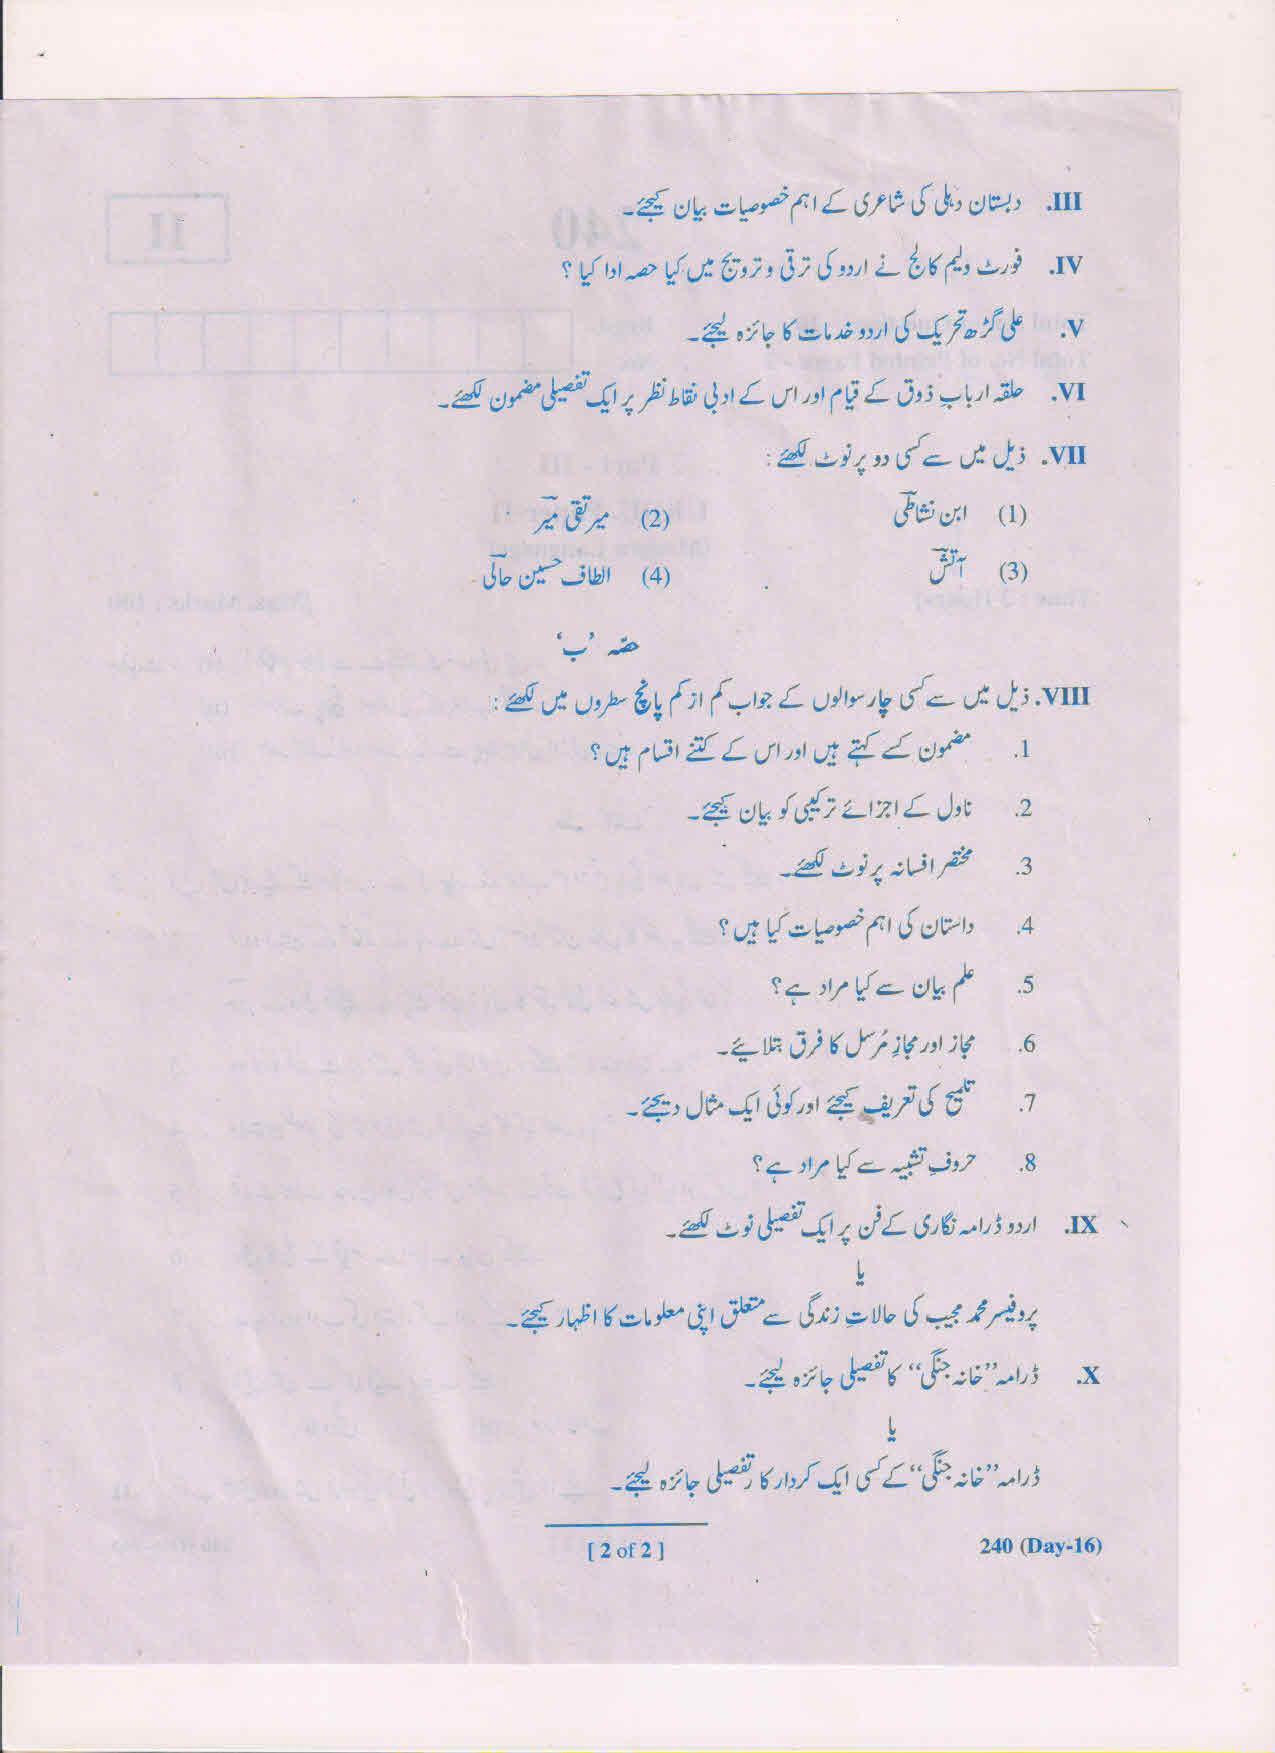 III. دبستان دہلی کی شاعری کے اہم خصوصیات بیان کیجئے۔
IV. فورٹ ولیم کالج نے اردو کی ترقی و ترویج میں کیا حصہ ادا کیا ؟
V. علی گڑھ تحریک کی اردو خدمات کا جائزہ لیجئے۔
VI. حلقہ اربابِ ذوق کے قیام اور اس کے ادبی نقاط نظر پر ایک تفصیلی مضمون لکھئے۔
VII. ذیل میں سے کسی دو پر نوٹ لکھئے :
(1) ابن نشاطیؔ (2) میر تقی میرؔ
(3) آتشؔ (4) الطاف حسین حالیؔ
حصّہ ’ب‘
VIII. ذیل میں سے کسی چار سوالوں کے جواب کم از کم پانچ سطروں میں لکھئے :
1. مضمون کسے کہتے ہیں اور اس کے کتنے اقسام ہیں؟
2. ناول کے اجزائے ترکیبی کو بیان کیجئے۔
3. مختصر افسانہ پر نوٹ لکھئے۔
4. داستان کی اہم خصوصیات کیا ہیں؟
5. علم بیان سے کیا مراد ہے؟
6. مجاز اور مجازِ مُرسل کا فرق بتلایئے۔
7. تلمیح کی تعریف کیجئے اور کوئی ایک مثال دیجئے۔
8. حروفِ تشبیہ سے کیا مراد ہے؟
IX. اردو ڈرامہ نگاری کے فن پر ایک تفصیلی نوٹ لکھئے۔
یا
پروفیسر محمد مجیب کی حالاتِ زندگی سے متعلق اپنی معلومات کا اظہار کیجئے۔
X. ڈرامہ ’’خانہ جنگی‘‘ کا تفصیلی جائزہ لیجئے۔
یا
ڈرامہ ’’خانہ جنگی‘‘ کے کسی ایک کردار کا تفصیلی جائزہ لیجئے۔
[ 2 of 2 ] 240 (Day-16)